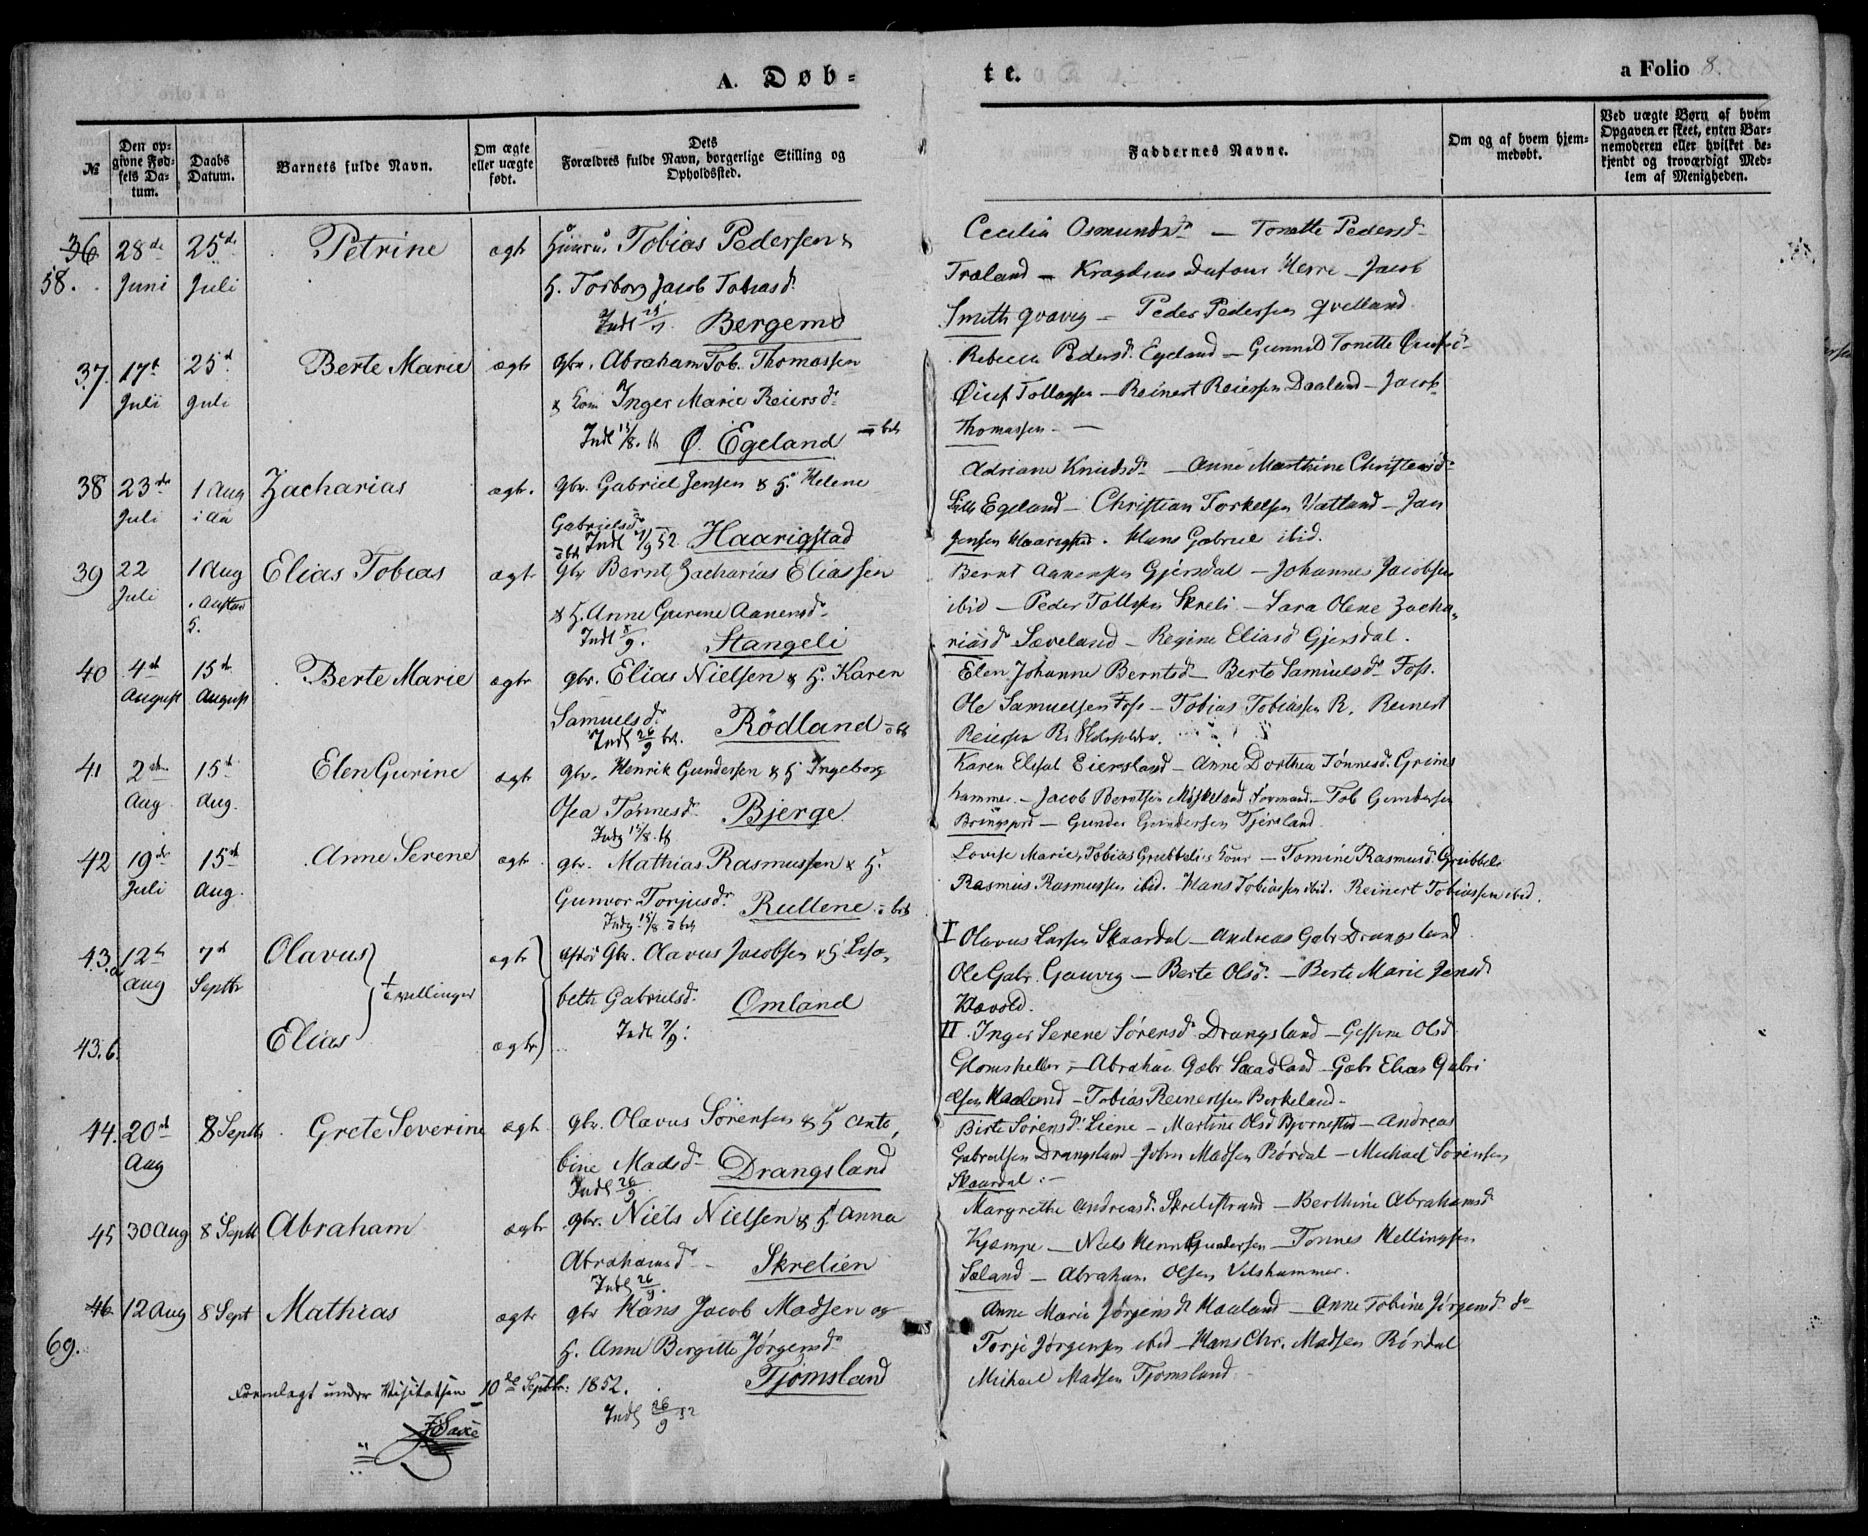 A. Døb-
te.
a Folio 8.
№
Den op-
givne Fød-
sels Da-
tum.
Daabs
Datum.
Barnets fulde Navn.
Om ægte
eller uægte
født.
Dets
Forældres fulde Navn, borgerlige Stilling og
Opholdssted.
Faddernes Navne.
Om og af hvem hjem-
medøbt.
Ved uægte Børn af hvem
Opgaven er skeet, enten Bar-
nemoderen eller hvilket be-
kjendt og troværdigt Med-
lem af Menigheden.
36
58.
28de
Juni
25de
Juli
Petrine
ægte
Tobias Pedersen &
H. Torborg Jacob Tobiasd.
Indl Bergemo
Cecilia Osmundsd. — Tonette Pedersd.
Træland — Herre — Jacob
Smith — Peder Pedersen Qvelland
37.
17d
Juli
25d
Juli
Berte Marie
ægte
Gbr. Abraham Tob. Thomassen
& Kone Inger Marie Reiersd.
Indl 15/8. Ø. Egeland
Rebecca Pedersd. Egeland — Gunnild Tonette
Tollagsen — Reinert Reiersen Daaland — Jacob
Thomassen —
38
23de
Juli
1 Aug
i Aa
Zacharias
ægte.
Gbr. Gabriel Jensen & H. Helene
Gabrielsd.
Indl 7/9 52. Haarigstad
Adriane Knudsd. — Anne Marthine Christensd.
Lille Egeland — Christian Torkelsen Vatland — Jan
Jensen Haarigstad. Hans Gabriel ibid.
39
22
Juli
1 Aug
Elias Tobias
ægte
Gbr Bernt Zacharias Eliassen
& H. Anne Gurine Aanensd.
Indl 8/9. Stangeli
Bernt Aanensen Gjersdal — Johannes Jacobsen
ibid — Peder Tallaksen Skreli — Sara Olene Zacha-
riasd. Sæveland — Regine Eliasd Gjersdal.
40
4de
August
15de
August
Berte Marie
ægte
Gbr. Elias Nielsen & H. Karen
Samuelsd.
Indl 26/9 Rödland
Elen Johanne Berntsd. — Berte Samuelsd. Foss.
Ole Samuelsen Foss — Tobias Tobiassen R. Reinert
Reiersen
41
2den
Aug.
15de
Aug.
Elen Gurine
ægte
Gbr. Henrik Gundersen & H Ingeborg
Osea Tønnesd.
Indg 15/8. Bjerge
Karen Elisab Eiersland — Anne Dorthea Tønnesd. Grims
hammer. — Jacob Berntsen — Tob Gundersen
Bringsjord — Gunder Gundersen Tjørsland.
42
19de
Juli
15de
Aug.
Anne Serene
ægte
Gbr. Mathias Rasmussen & H.
Gunvor Torjusd.
Indg. 15/8 Rullene
Lovise Marie, Tobias Grubbelis Kone — Tomine Rasmusd. Grubbeli
Rasmus Rasmussen ibid. Hans Tobiassen ibid. Reinert Tobiassen ibid.
43.a
12te
Aug
7de
Septbr
Olavus
tvillinger
ægte
Gbr. Olavus Jacobsen & H Lisa-
beth Gabrielsd.
Indl 7/9. Omland
I Olavus Larsen Skaardal — Andreas Gabr Drangsland
Ole Gabr. Gauvig — Berte Olsd. — Berte Marie Jensd
Hævold.
43.b.
Elias
ægte
II. Inger Serene Sørensd. Drangsland — Gessine Olsd
— Abraham Gabr Saadland — Gabr Elias Gabri
elsen Haaland — Tobias Reinertsen Birkeland —
44.
20de
Aug
8 Septbr
Grete Severine
ægte
Gbr. Olavus Sørensen & H Anto-
bine Madsd.
Indl 26/9. Drangsland
Birte Sørensd. Liene — Martine Olsd Bjørnestad — Andreas
Gabrielsen Drangsland — John Madsen Rørdal — Michael Sørensen
Skaardal. —
45
30 Aug
8 Septb
Abraham
ægte
Gbr. Niels Nielsen & H. Anna
Abrahamsd.
Indl 26/9. Skrelien
Margrethe Andreasd. Skrelistrand — Berthine Abrahamsd.
Kjæmpe — Niels Henr Gundersen — Tønnes Hellingsen
Sæland — Abraham Olsen Vilshammer.
46
69.
12 Aug
8 Sept
Mathias
ægte
Gbr Hans Jacob Madsen og
H. Anne Birgitte Jørgensd.
Tjomsland
Indl 26/9 52
Anne Marie Jørgensd Haaland — Anne Tobine Jørgensd. do
Torje Jørgensen ibid — Hans Chr. Madsen Rørdal
Michael Madsen Tjomsland.
Fremlagt under Visitatsen 10de Septbr: 1852.